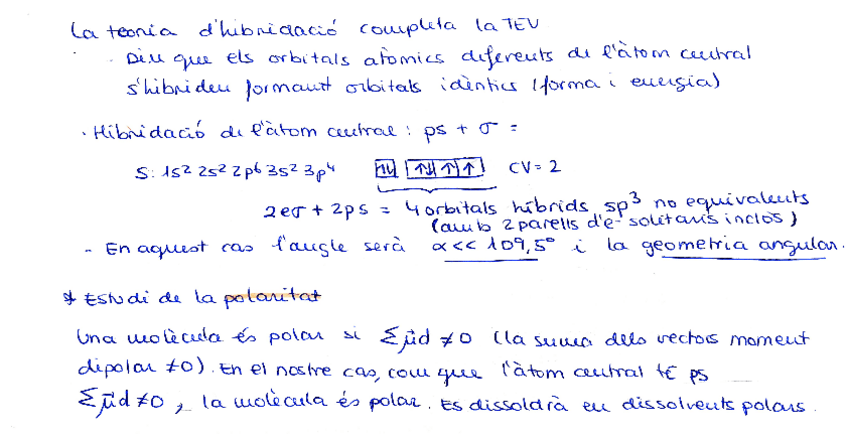 La teoria d'hibridació completa la TEV
· Diu que els orbitals atòmics diferents de l'àtom central
s'hibriden formant orbitals idèntics (forma i energia)
· Hibridació de l'àtom central: ps + σ =
S: 1s² 2s² 2p⁶ 3s² 3p⁴ [↑↓] [↑↓|↑|↑] CV = 2
2eσ + 2ps = 4 orbitals híbrids sp³ no equivalents
(amb 2 parells d'e⁻ solitaris inclòs)
- En aquest cas l'angle serà α << 109,5° i la geometria angular.
* Estudi de la polaritat
Una molècula és polar si Σμ⃗d ≠ 0 (la suma dels vectors moment
dipolar ≠ 0). En el nostre cas, com que l'àtom central té ps
Σμ⃗d ≠ 0, la molècula és polar. Es dissoldrà en dissolvents polars.